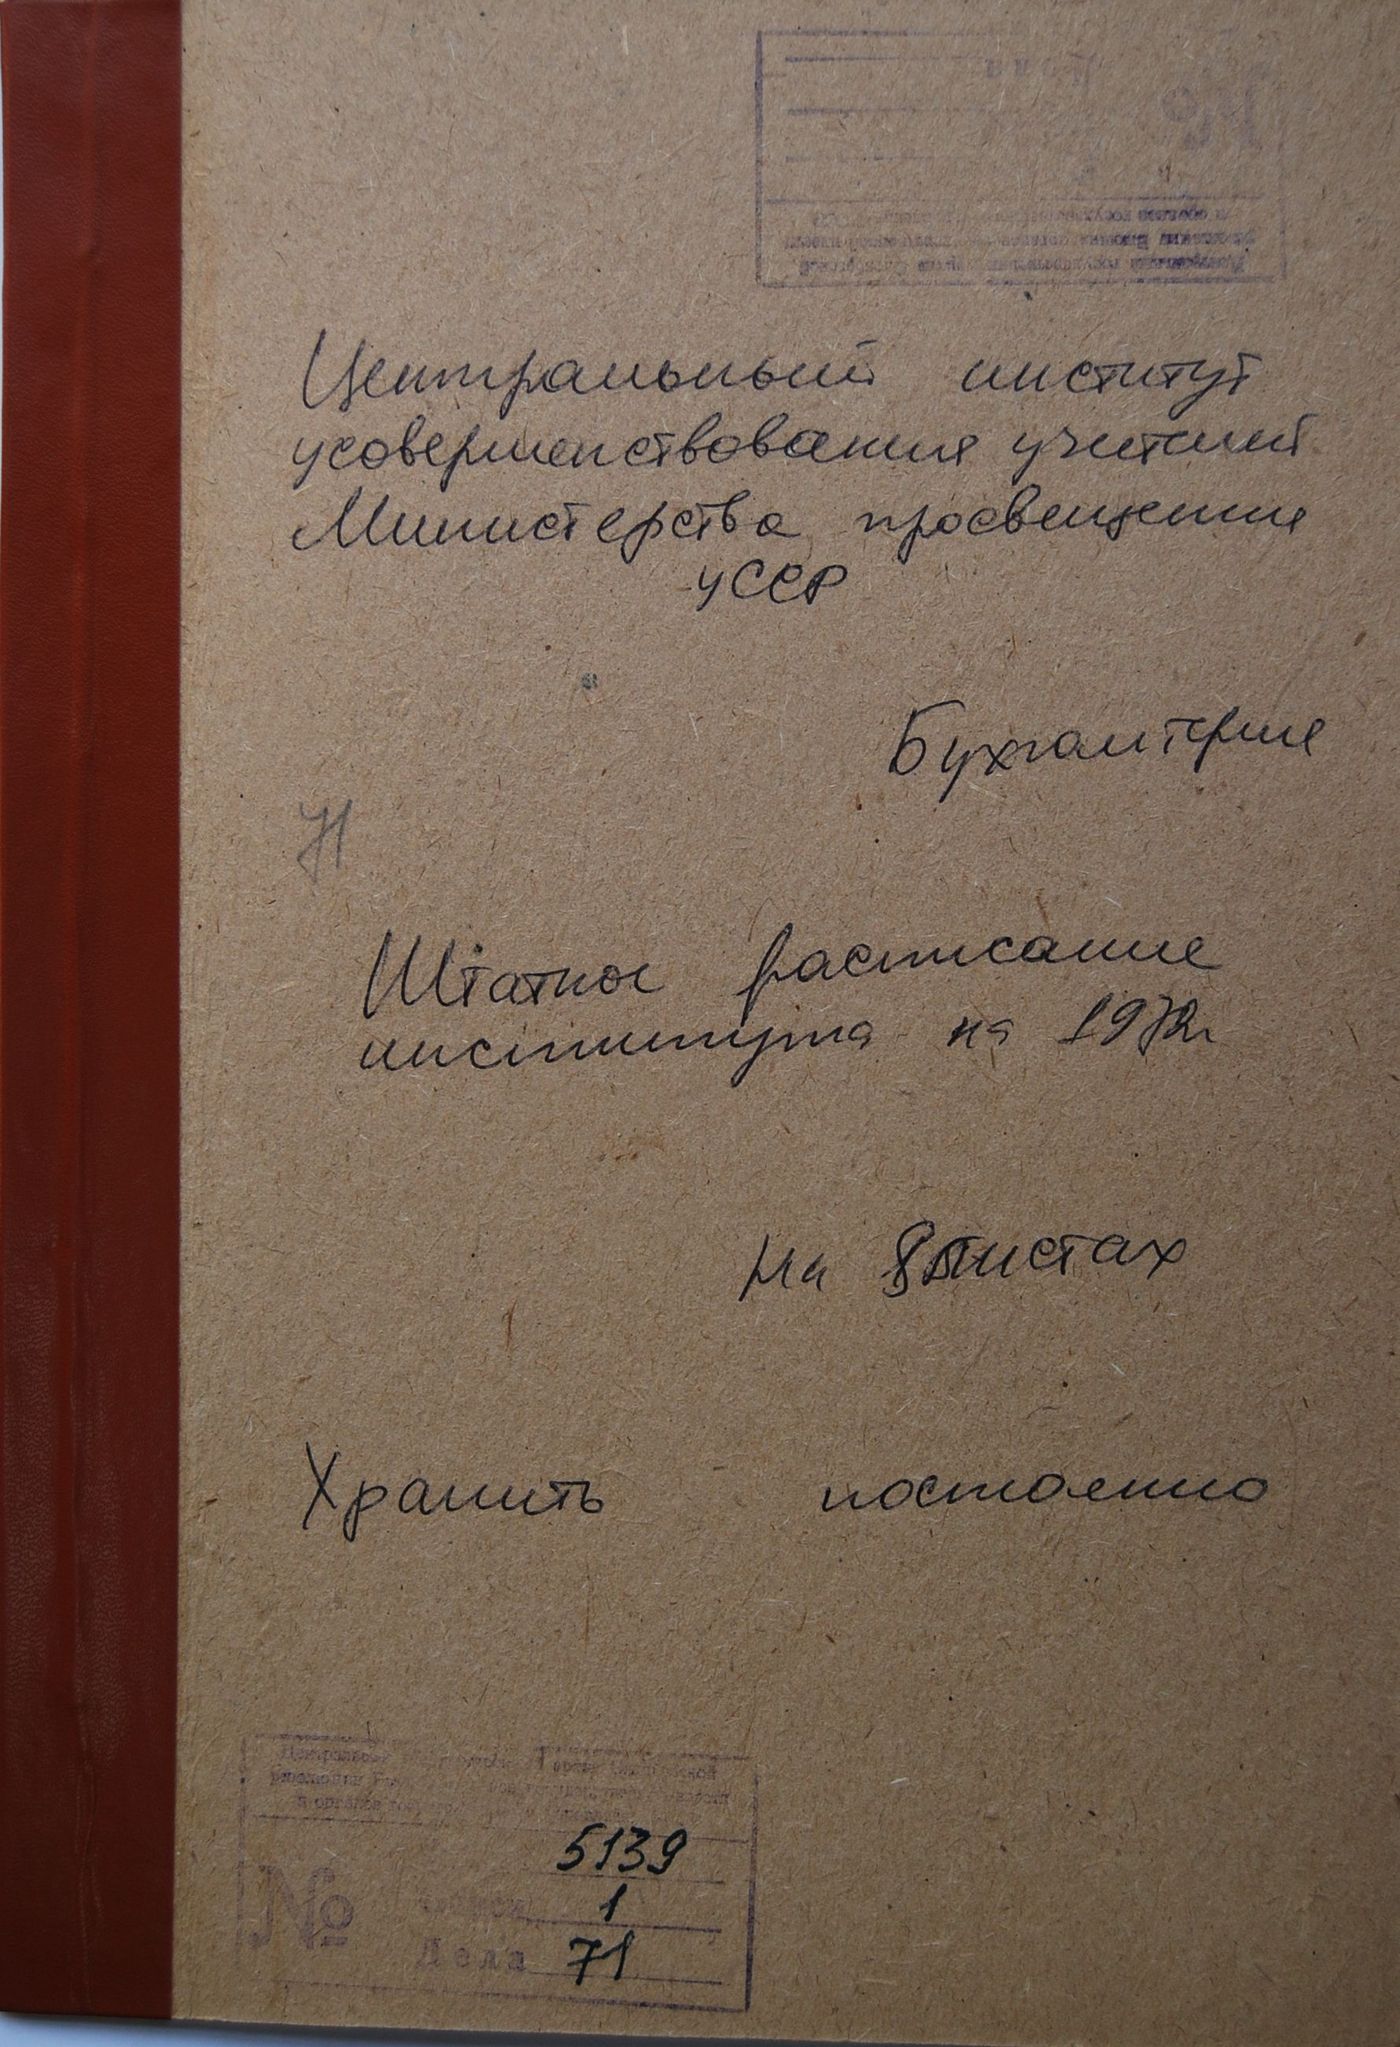 Центральный институт
усовершенствования учителей
Министерства просвещения
УССР
Бухгалтерия
71
Штатное расписание
института на 1972г
на 8 листах
Хранить постоянно
революции
и органов
5139
№ 1
Дела 71